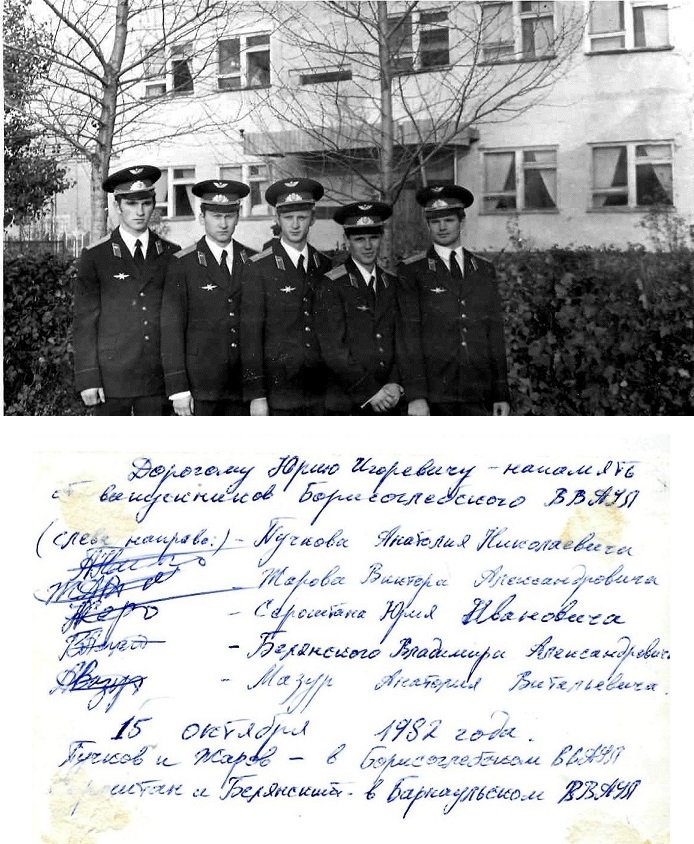 Дорогому Юрию Игоревичу - на память
от выпускников Борисоглебского ВВАУЛ
(слева направо:) - Пучкова Анатолия Николаевича
- Жарова Виктора Александровича
- Сероштана Юрия Ивановича
- Белянского Владимира Александрович
- Мазур Анатолия Витальевича.
15 октября 1982 года.
Пучков и Жаров - в Борисоглебском ВВАУЛ
Сероштан и Белянский - в Барнаульском ВВАУЛ